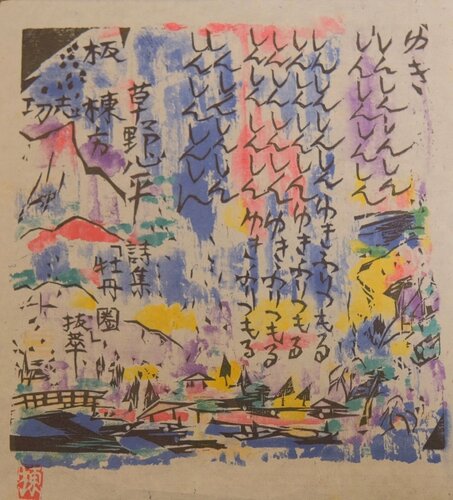 ゆき
しんしんしんしん
しんしんしんしん
しんしんしんしんゆきふりつもる
しんしんしんしんゆきふりつもる
しんしんしんしんゆきふりつもる
しんしんしんしんゆきふりつもる
しんしんしんしん
しんしんしんしん
草野心平
詩集
「牡丹圏」
抜萃
板 棟方
志功
棟